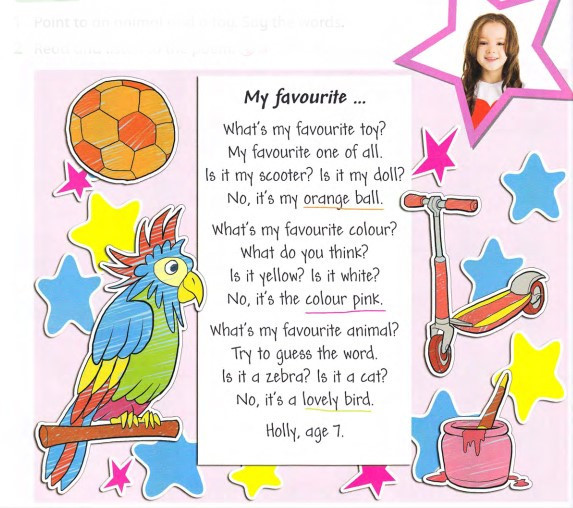 1 Point to an animal and a toy. Say the words.
My favourite ...
What's my favourite toy?
My favourite one of all.
Is it my scooter? Is it my doll?
No, it's my orange ball.
What's my favourite colour?
What do you think?
Is it yellow? Is it white?
No, it's the colour pink.
What's my favourite animal?
Try to guess the word.
Is it a zebra? Is it a cat?
No, it's a lovely bird.
Holly, age 7.